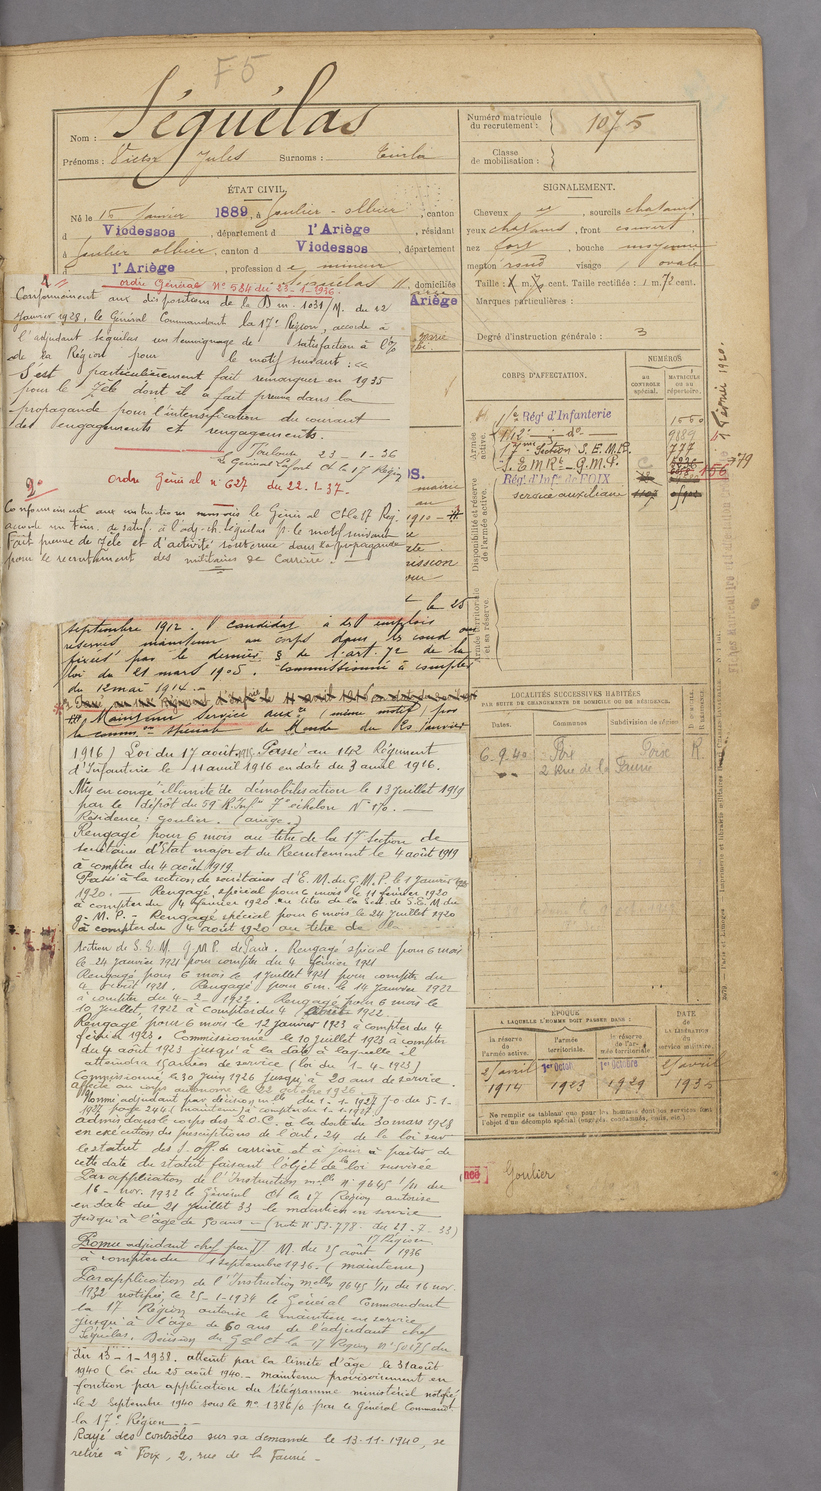 F5
Nom : Séguélas
Prénoms : Victor Jules Surnoms :
Numéro matricule
du recrutement : 1075
Classe
de mobilisation :
ÉTAT CIVIL.
Né le 16 Janvier 1889, à Goulier-Olbier, canton
d Vicdessos, département d l'Ariège, résidant
à Goulier Olbier, canton d Vicdessos, département
d l'Ariège, profession d e mineur
Séguélas
domiciliés
Ariège
SIGNALEMENT.
Cheveux , sourcils chatains
yeux chatains, front couvert
nez fort, bouche moyenne
menton rond visage ovale
Taille : 1 m. cent. Taille rectifiée : 1 m. 72 cent.
Marques particulières :
Degré d'instruction générale : 3
1°
Ordre Général N° 584 du 23-1-1936
Conformément aux dispositions de la D m. 1031/M. du 12
Janvier 1928, le Général Commandant la 17e Région, accorde à
l'adjudant Séguélas un témoignage de satisfaction à l'o/
de la Région pour le motif suivant : «
S'est particulièrement fait remarquer en 1935
pour le zèle dont il a fait preuve dans la
propagande pour l'intensification du courant
des engagements et rengagements.
Toulouse 23-1-36
Le Général Ct la 17e Région
2°
Ordre Général n° 627 du 22-1-37.
Conformément aux instructions le Général Ct la 17 Rég.
accorde un tém. de satisf. à l'adj-ch. Séguélas p. le motif suivant
Fait preuve de zèle et d'activité soutenue dans la propagande
pour le recrutement des militaires de Carrière.
mairie
au
1910
le 25
septembre 1912. Candidat à des emplois
réservés maintenu au corps dans les cond ons
fixées par le dernier § de l'art. 72 de la
loi du 21 mars 1905. Commissionné à compter
du 12 mai 1914.
Passé au 142 Régiment d'Infie le 11 avril 1916
Maintenu Service auxre (même motif) par
la comm.on spéciale de Mende du 25 Janvier
1916) Loi du 17 août 1915 Passé au 142 Régiment
d'Infanterie le 11 avril 1916 en date du 3 avril 1916.
Mis en congé illimité de démobilisation le 13 juillet 1919
par le dépôt du 59e R. Infie 7e échelon N° 170.
Résidence : Goulier. (Ariège.)
Rengagé pour 6 mois au titre de la 17 Section de
secrétaires d'Etat major et du Recrutement le 4 août 1919
à compter du 4 août 1919.
Passé à la section de secrétaires d'E. M. du G. M. P. le 1 Janvier
1920. — Rengagé spécial pour 6 mois le 11 février 1920
à compter du 4 février 1920 au titre de la Sect. de S. E. M. du
G. M. P. - Rengagé spécial pour 6 mois le 24 Juillet 1920
à compter du 4 août 1920 au titre de la
section de S. E. M. G. M. P. de Paris. Rengagé spécial pour 6 mois
le 24 Janvier 1921 pour compter du 4 février 1921
Rengagé pour 6 mois le 1 Juillet 1921 pour compter du
4 août 1921. Rengagé pour 6 m. le 14 Janvier 1922
à compter du 4-2-1922. Rengagé pour 6 mois le
10 Juillet, 1922 à compter du 4 août 1922.
Rengagé pour 6 mois le 12 Janvier 1923 à compter du 4
février 1923. Commissionné le 10 juillet 1923 à compter
du 4 août 1923 jusqu'à la date à laquelle il
atteindra 15 années de service (loi du 1-4-1923)
Commissionné le 30 Juin 1926 jusqu'à 20 ans de service.
Affecté au corps autonome le 22 octobre 1926
Nommé adjudant par décision mlle du 1-1-1927 J.O. du 5-1-
1927 page 244 (maintenu) à compter du 1-1-1927
Admis dans le corps des S.O.C. à la date du 30 mars 1928
en exécution des prescriptions de l'art. 24 de la loi sur
le statut des S/off. de carrière et à jouir à partir de
cette date du statut faisant l'objet de la loi susvisée
Par application de l'Instruction mlle N° 9645 1/11 du
16-nov. 1932 le Général Ct la 17 Région autorise
en date du 21 juillet 33 le maintien en service
jusqu'à l'âge de 50 ans - (note N° 53.778 - du 21-7-33)
17 Région
Promu adjudant chef par D M. du 25 août 1936
à compter du 1 septembre 1936 - (maintenu)
Par application de l'Instruction mlle 9645 1/11 du 16 nov.
1932 notifiée le 25-1-1934 le Général Commandant
la 17 Région autorise le maintien en service
jusqu'à l'âge de 60 ans de l'adjudant chef
Séguélas. Décision du Gal Ct la 17 Région N° 50175 du
du 13-1-1938. atteint par la limite d'âge le 31 août
1940 (loi du 25 août 1940 - maintenu provisoirement en
fonction par application du télégramme ministériel notifié
le 2 septembre 1940 sous le N° 1386/0 par le Général Commandt
la 17e Région.
Rayé des contrôles sur sa demande le 13-11-1940, se
retire à Foix, 2, rue de la Faurie -
CORPS D'AFFECTATION.
NUMÉROS
AU CONTROLE spécial.
MATRICULE ou au répertoire.
Armée active.
Régt d'Infanterie
142 do 9889
17me Section S. E. M. R. 777
S. E M Rt - G.M.P.
156
Régt d'Infie de FOIX
service auxiliaire
Disponibilité et réserve
de l'armée active.
Armée territoriale
et sa réserve.
LOCALITÉS SUCCESSIVES HABITÉES
PAR SUITE DE CHANGEMENTS DE DOMICILE OU DE RÉSIDENCE.
Dates. Communes Subdivision de région D. DOMICILE. R. RÉSIDENCE.
6.9.40 Foix Foix R.
2 Rue de la Faurie
ÉPOQUE
A LAQUELLE L'HOMME DOIT PASSER DANS :
la réserve de l'armée active. l'armée territoriale. la réserve de l'armée territoriale
DATE de LA LIBÉRATION du service militaire.
2 avril 1914
1er Octob. 1923
1er Octobre 1929
2 avril 1935
Ne remplir ce tableau que pour les hommes dont les services font
l'objet d'un décompte spécial (engagés, condamnés, omis, etc.).
Goulier